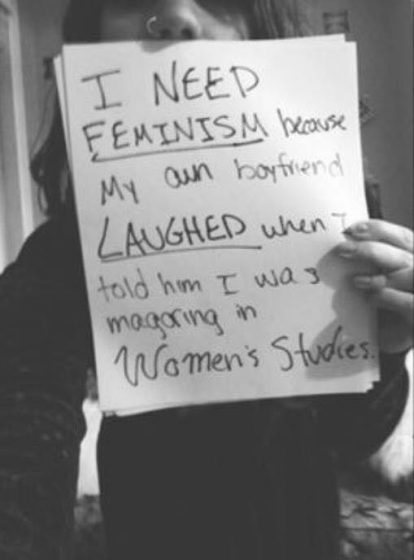 I NEED
FEMINISM because
My own boyfriend
LAUGHED when I
told him I was
magoring in
Women's Studies.